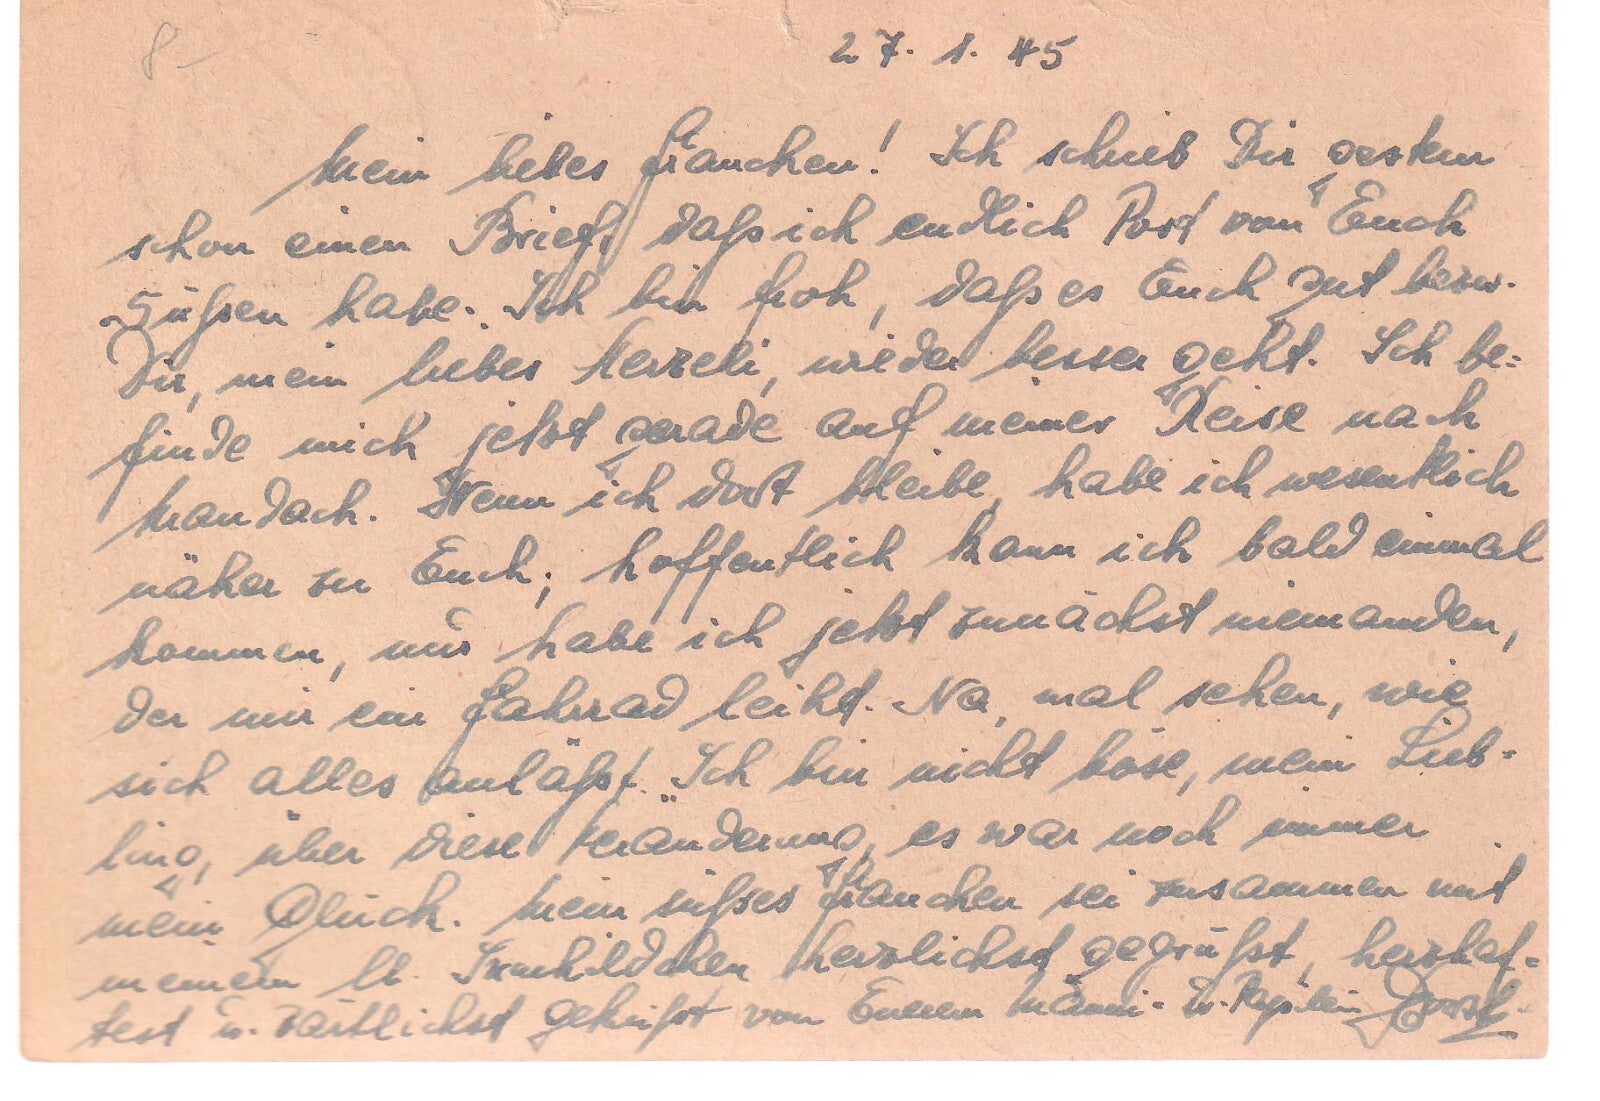 8-
27. 1. 45
Mein liebes Frauchen! Ich schrieb Dir gestern
schon einen Brief, daß ich endlich Post von Euch
Süßen habe. Ich bin froh, daß es Euch gut bezw.
Dir, mein liebes Herzeli, wieder besser geht. Ich be=
finde mich jetzt gerade auf meiner Reise nach
Mandach. Wenn ich dort bleibe, habe ich wesentlich
näher zu Euch; hoffentlich kann ich bald einmal
kommen, nur habe ich jetzt zunächst niemanden,
der mir ein Fahrrad leiht. Na, mal sehen, wie
sich alles anläßt. Ich bin nicht böse, mein Lieb-
ling, über diese Veränderung, es war noch immer
mein Glück. Mein süßes Frauchen sei zusammen mit
meinem lb. herzlichst gegrüßt, herzhaf-
test u. zärtlichst geküßt von Eurem Männi- u. Papilein